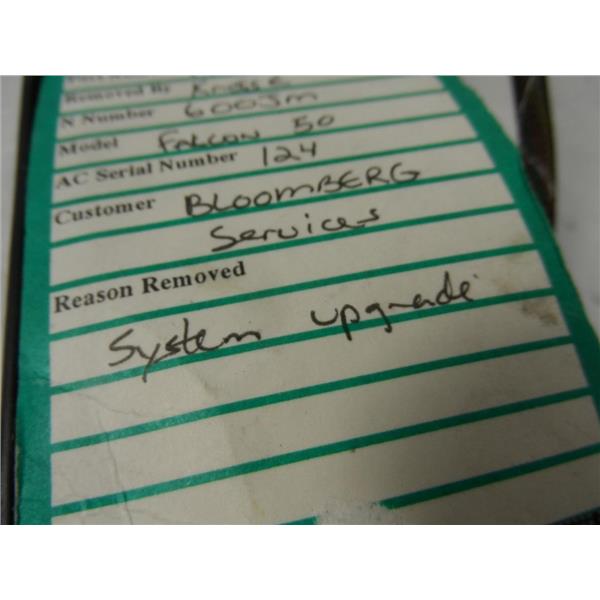 Removed By
N Number 600Jm
Model Falcon 50
AC Serial Number 124
Customer BLOOMBERG
Services
Reason Removed
System upgrade